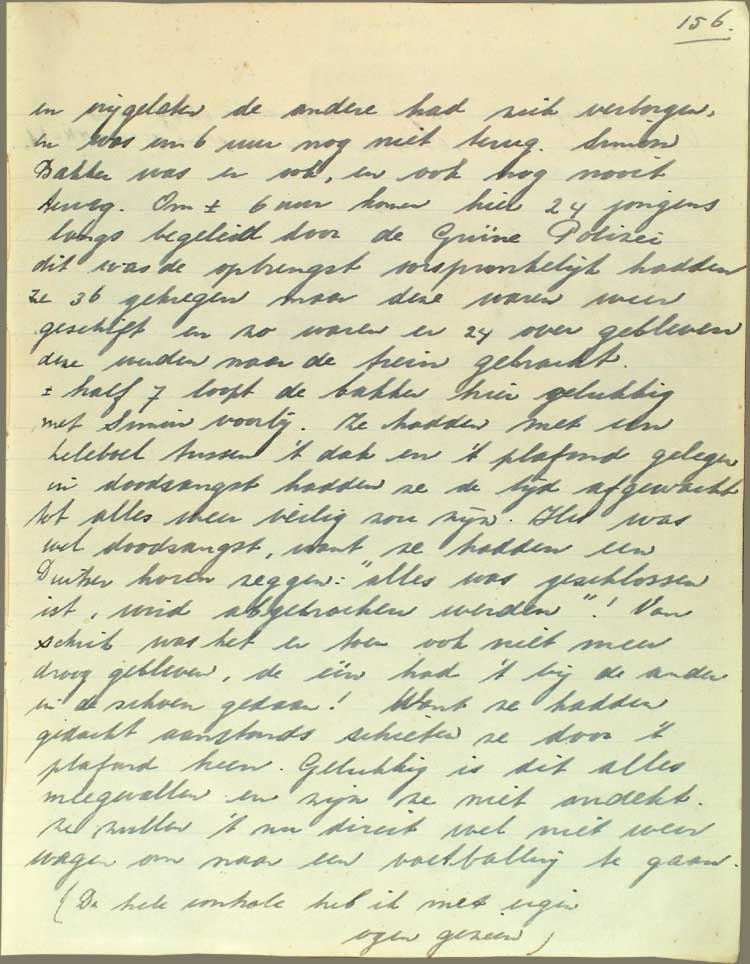 156.
en vrijgelaten de andere had zich verborgen,
en was om 6 uur nog niet terug. Simon
Bakker was er ook, en ook nog nooit
terug. Om ± 6 uur komen hier 24 jongens
langs begeleid door de Grüne Polizei
dit was de opbrengst oorspronkelijk hadden
ze 36 gekregen maar deze waren weer
geschift en zo waren er 24 over gebleven
deze werden naar de trein gebracht.
± half 7 loopt de bakker hier gelukkig
met Simon voorbij. Ze hadden met een
heleboel tussen 't dak en 't plafond gelegen
in doodsangst hadden ze de tijd afgewacht
tot alles weer veilig zou zijn. Het was
wel doodsangst, want ze hadden een
Duitser horen zeggen: "alles was geschlossen
ist, wird abgebrochen werden"! Van
schrik was het er toen ook niet meer
droog gebleven, de één had 't bij de ander
in de schoen gedaan! Want ze hadden
gedacht aanstonds schieten ze door 't
plafond heen. Gelukkig is dit alles
meegevallen en zijn ze niet ondekt.
ze zullen 't nu direct wel niet weer
wagen om naar een voetballerij te gaan.
(De hele controle heb ik met eigen
ogen gezien)